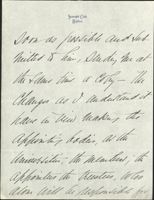 Somerset Club
Boston
soon as possible and sub
mitted to him, sending me at
the same time a copy. The
changes as I understand it
have in view making the
appointing bodies, as the
Universities; the members, the
appointees the Trustees, who
alone will be responsible for